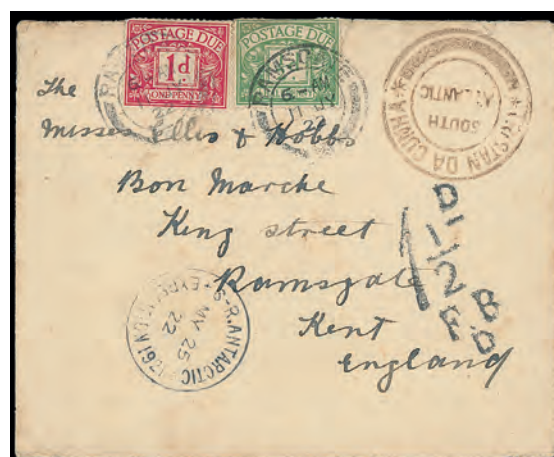 POSTAGE DUE
1d
ONE PENNY
POSTAGE DUE
RAMSGATE
TRISTAN DA CUNHA
SOUTH
ATLANTIC
The
Misses Ellis & Hobbs
Bon Marche
King street
Ramsgate
Kent
England
S-R. ANTARCTIC
MY 25
22
1
D 1/2 F
B.P